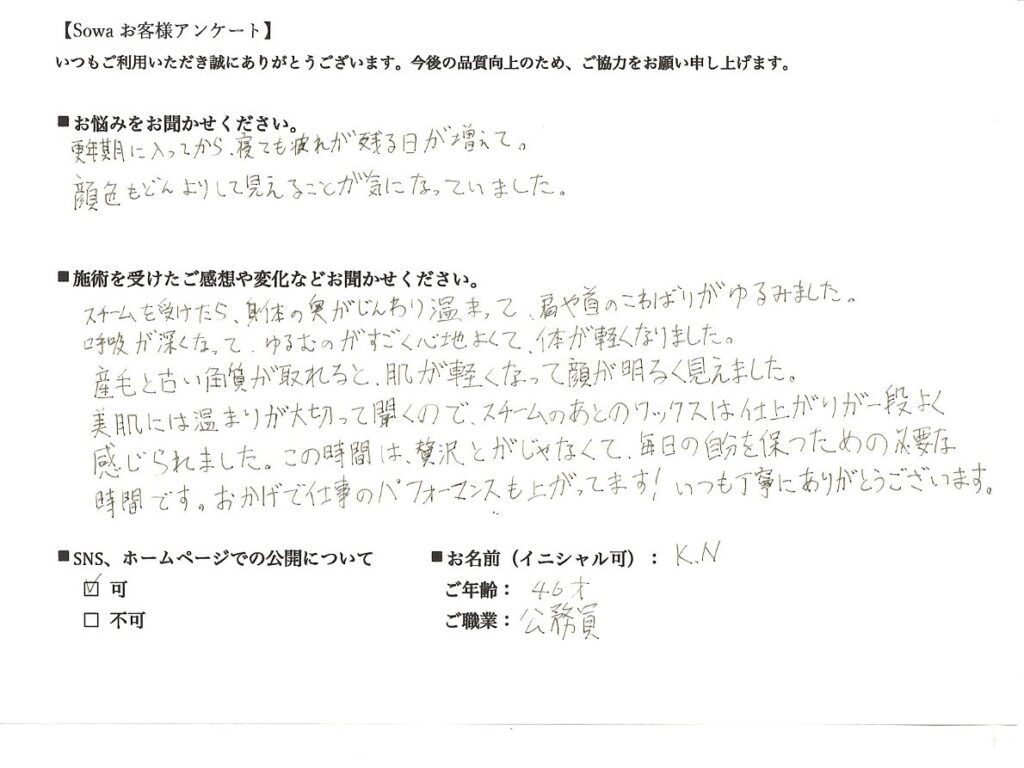 【Sowa お客様アンケート】
いつもご利用いただき誠にありがとうございます。今後の品質向上のため、ご協力をお願い申し上げます。
■お悩みをお聞かせください。
更年期に入ってから、寝ても疲れが残る日が増えて。
顔色もどんよりして見えることが気になっていました。
■施術を受けたご感想や変化などお聞かせください。
スチームを受けたら、身体の奥がじんわり温まって、肩や首のこわばりがゆるみました。
呼吸が深くなって、ゆるむのがすごく心地よくて、体が軽くなりました。
産毛と古い角質が取れると、肌が軽くなって顔が明るく見えました。
美肌には温まりが大切って聞くので、スチームのあとのワックスは仕上がりが一段よく
感じられました。この時間は、贅沢とかじゃなくて、毎日の自分を保つための必要な
時間です。おかげで仕事のパフォーマンスも上がってます！いつも丁寧にありがとうございます。
■SNS、ホームページでの公開について
☑ 可
□ 不可
■お名前（イニシャル可）： K.N
ご年齢： 46才
ご職業： 公務員